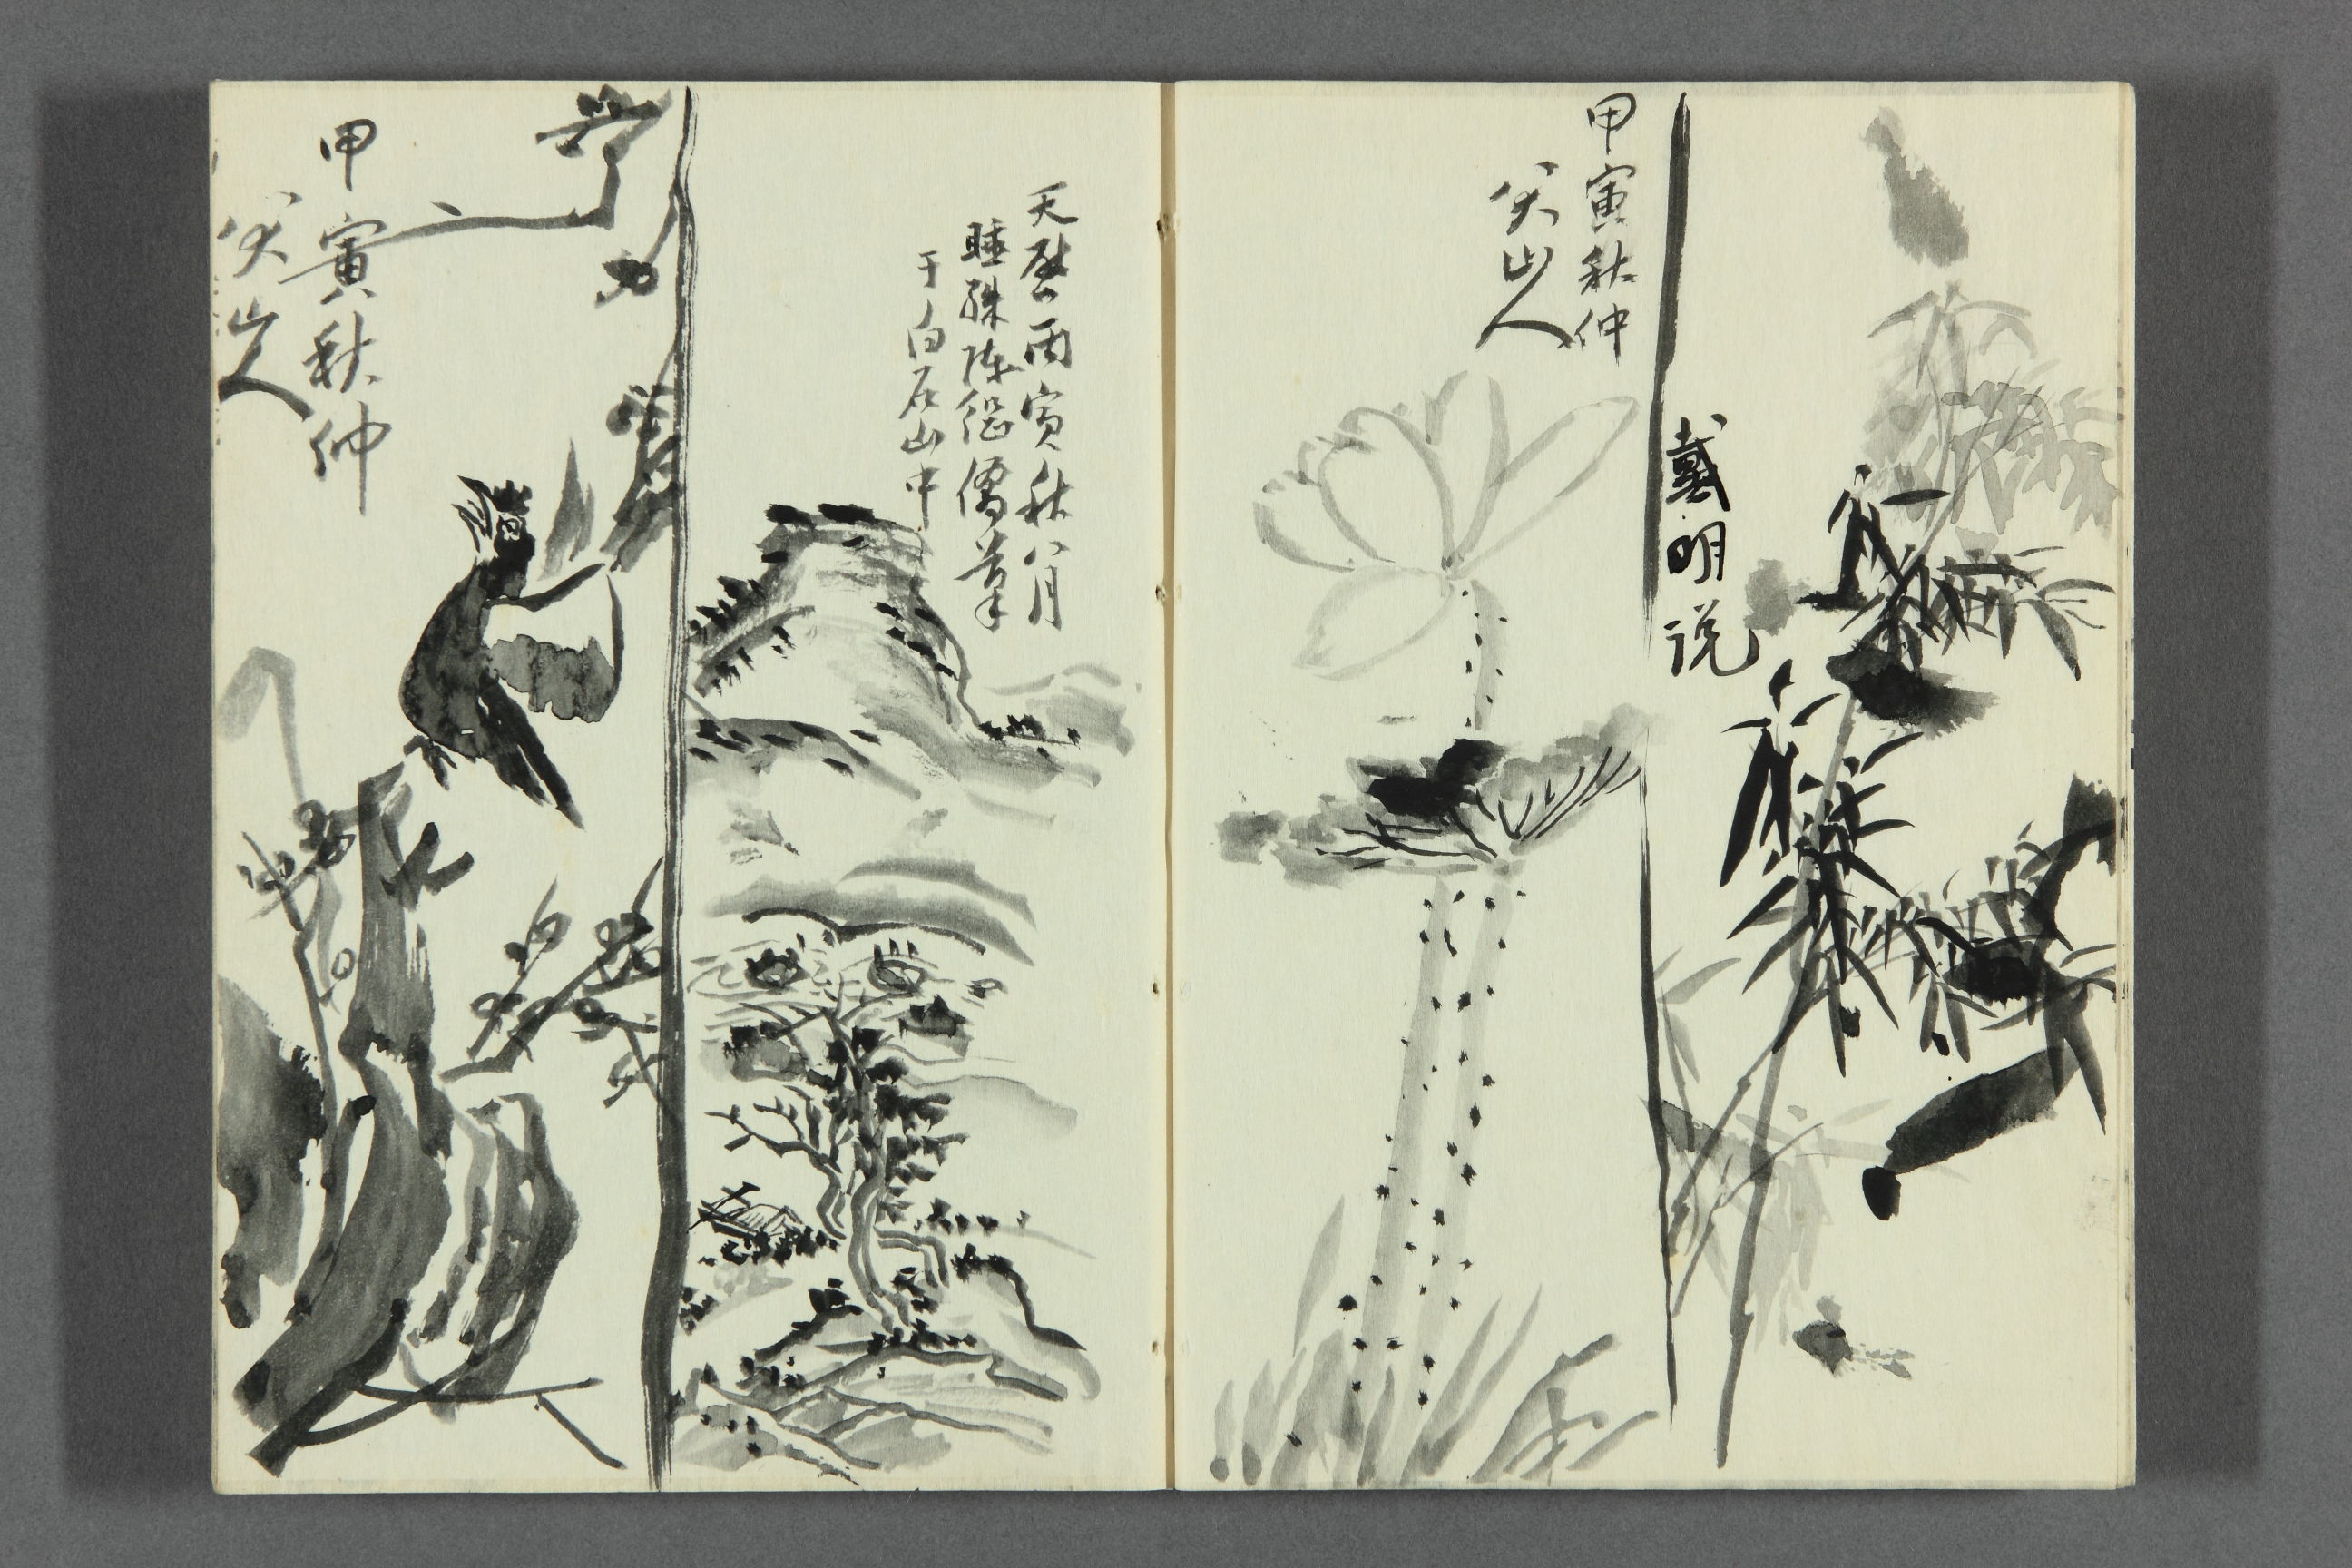 戴明说
甲寅秋仲
八大山人
天啓丙寅秋八月
睡陈继儒筆
于白石山中
甲寅秋仲
八大山人